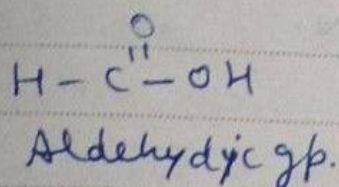 O
||
H - C - OH
Aldehydic gp.